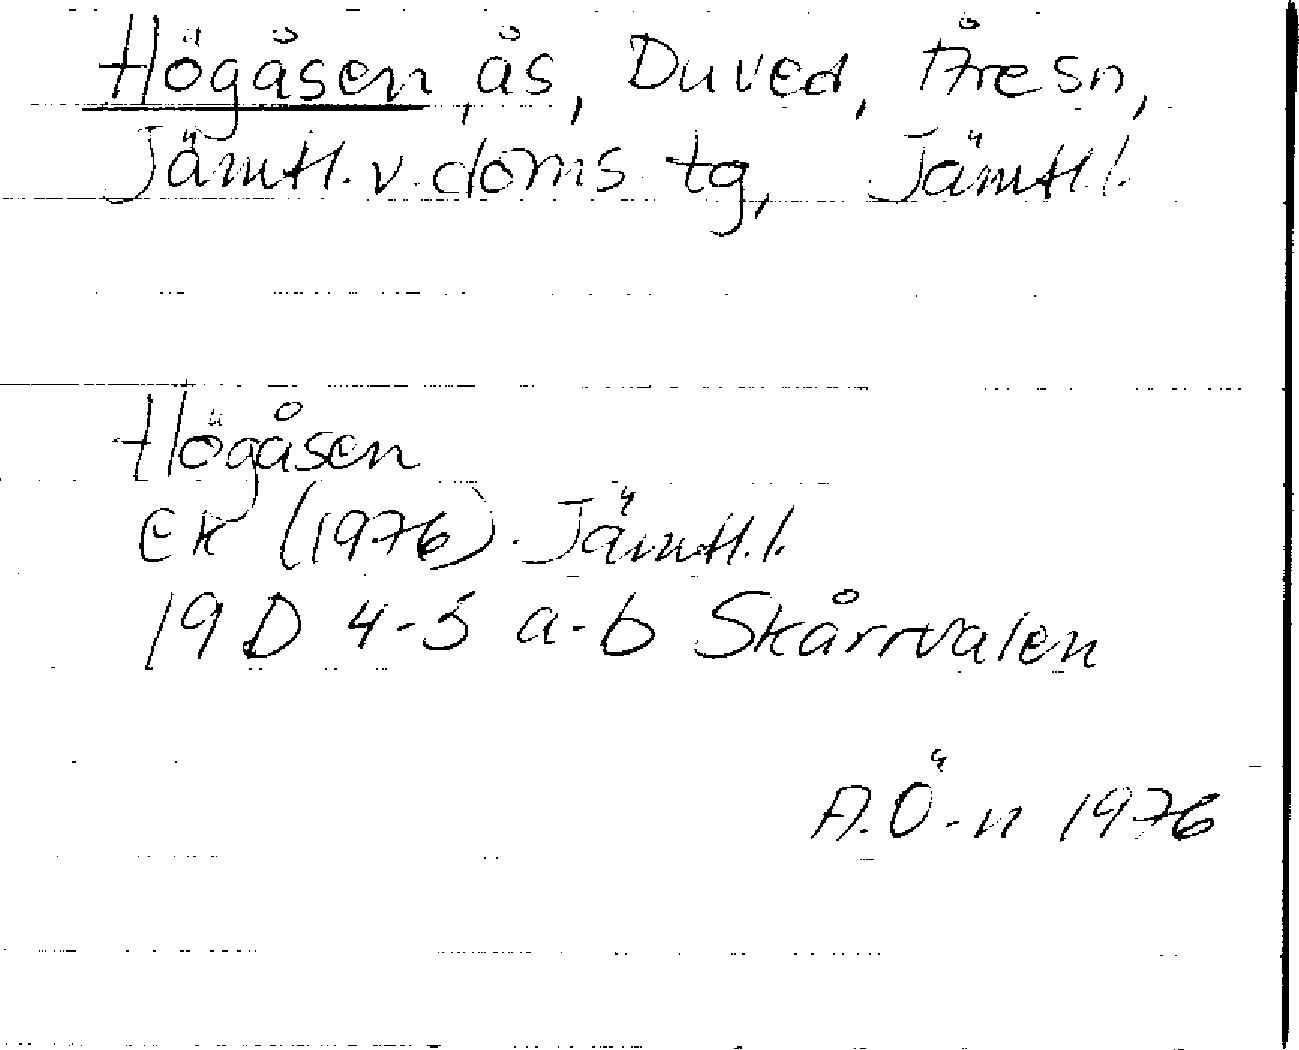 Högåsen, ås, Duved, Åre sn,
Jämtl. v. doms tg, Jämtl. l.
Högåsen
EK (1976). Jämtl. l.
19 D 4-5 a-b Skårrvalen
A. Ö-n 1976